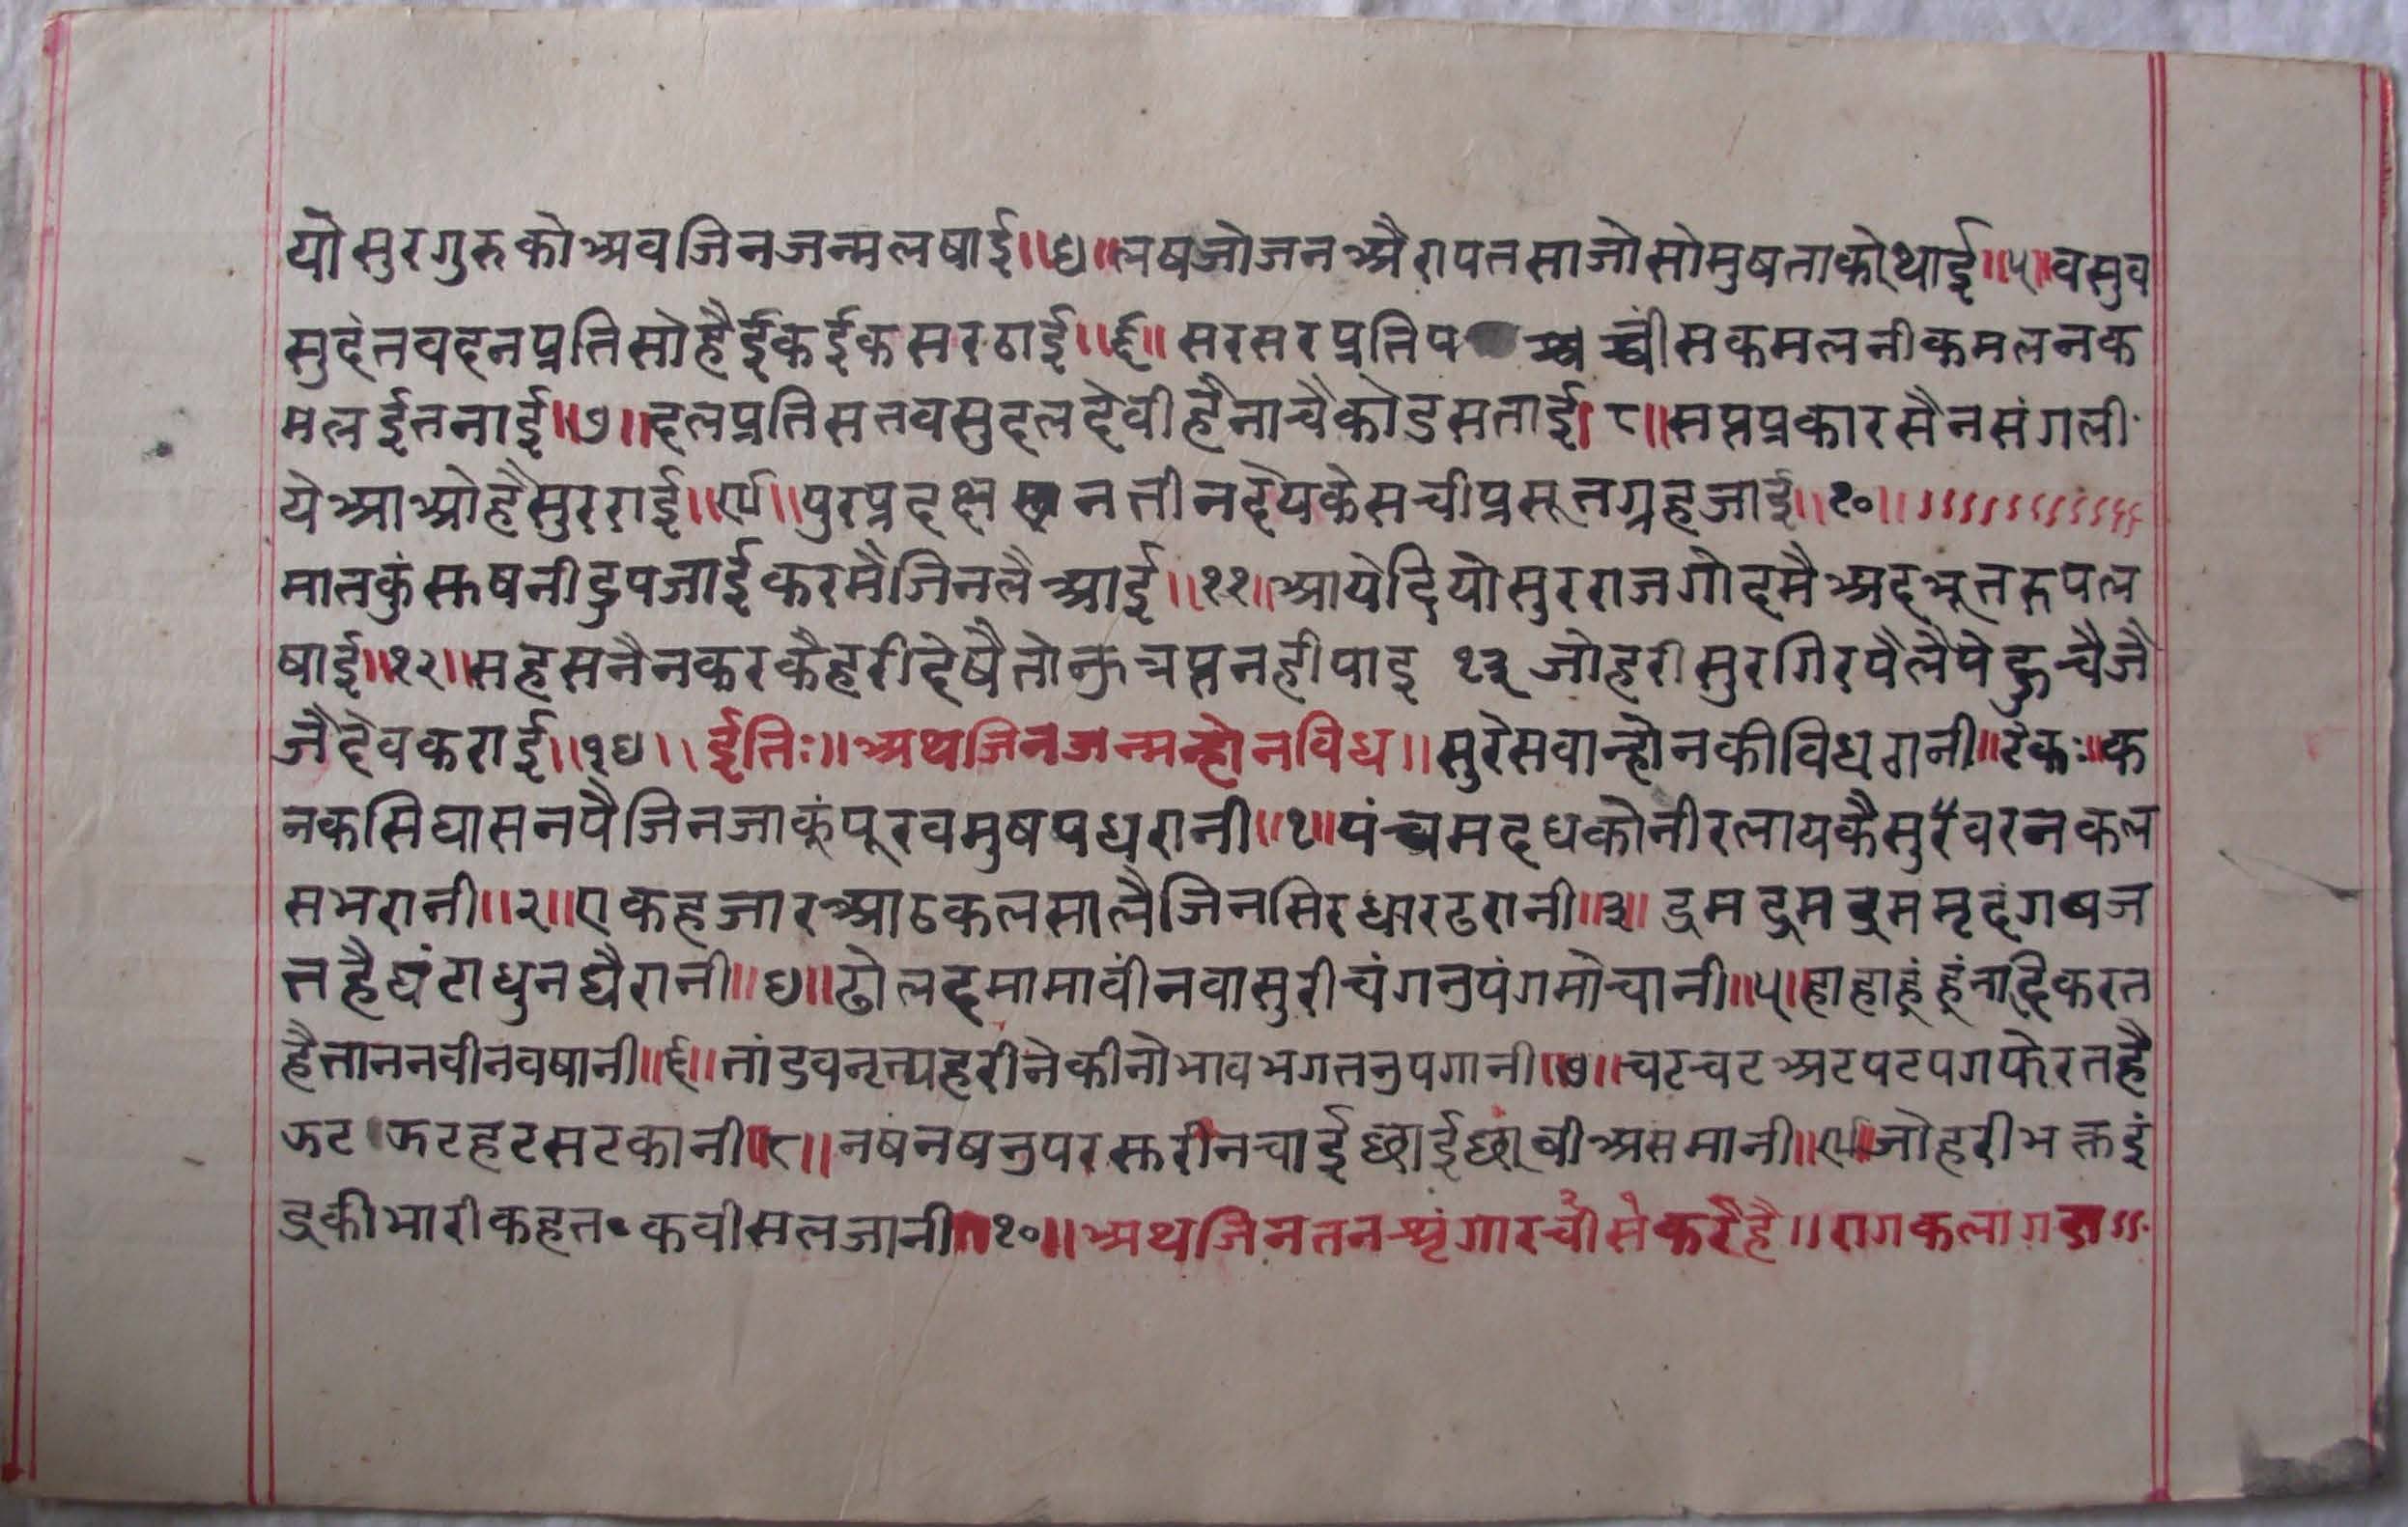 यो सुरगुरु को अव जिन जन्म लषाई॥४॥ लष जोजन अैरापत साजो सो मुष ताको थाई॥५॥ वसु व
सु दंत व दन प्रति सोहै ईक ईक सर ठाई॥६॥ सर सर प्रति प च्चीस कमलनी कमलन क
मल ईतनाई॥७॥ दल प्रति सत वसु दल देवी है नाचै कोड सताई॥८॥ सप्त प्रकार सैन संग ली
ये आओ है सुर राई॥९॥ पुर प्रदक्ष न तीन देय के सची प्रसूत ग्रह जाई॥१०॥
मात कुं सुष नीद्रुपजाई कर मै जिन लै आई॥११॥ आये दियो सुरराज गोद मै अदभूत रुप ल
षाई॥१२॥ सहस नैन कर कै हरी देषै तोऊ त्रप्त नही पाइ १३ जो हरी सुरगिर पै लै पेहुचै जै
जै देव कराई॥१४॥ ईतिः॥ अथ जिन जन्म न्होन विध॥ सुरेस वा न्होन की विध ठानी॥ टेकः॥ क
नक सिघासन पै जिन जाकूं पूरव मुष पधरानी॥१॥ पंचमदध को नीर लाय कै सुर वरन कल
स भरानी॥२॥ एक हजार आठ कलसा लै जिन सिर धार ढरानी॥३॥ द्रुम द्रुम द्रुम मृदंग बज
त है घंटा धुन घैरानी॥४॥ ढोल दमामा वीन वासुरी चंग नुपंग मोचानी॥५॥ हा हा हूं हूं नादि करत
है तान नवीन वषानी॥६॥ तांडव नृत्य हरी ने कीनो भाव भगत नुपगानी॥७॥ चट चट अट पट पग फेरत है
झट झट हट सटकानी॥८॥ नष नष नुपर सुरी नचाई छाई छवी असमानी॥९॥ जो हरी भक्त इं
द्र की भारी कहत कवी सलजानी॥१०॥ अथ जिन तन श्रृंगार चौसे करै है॥ राग कलागडा